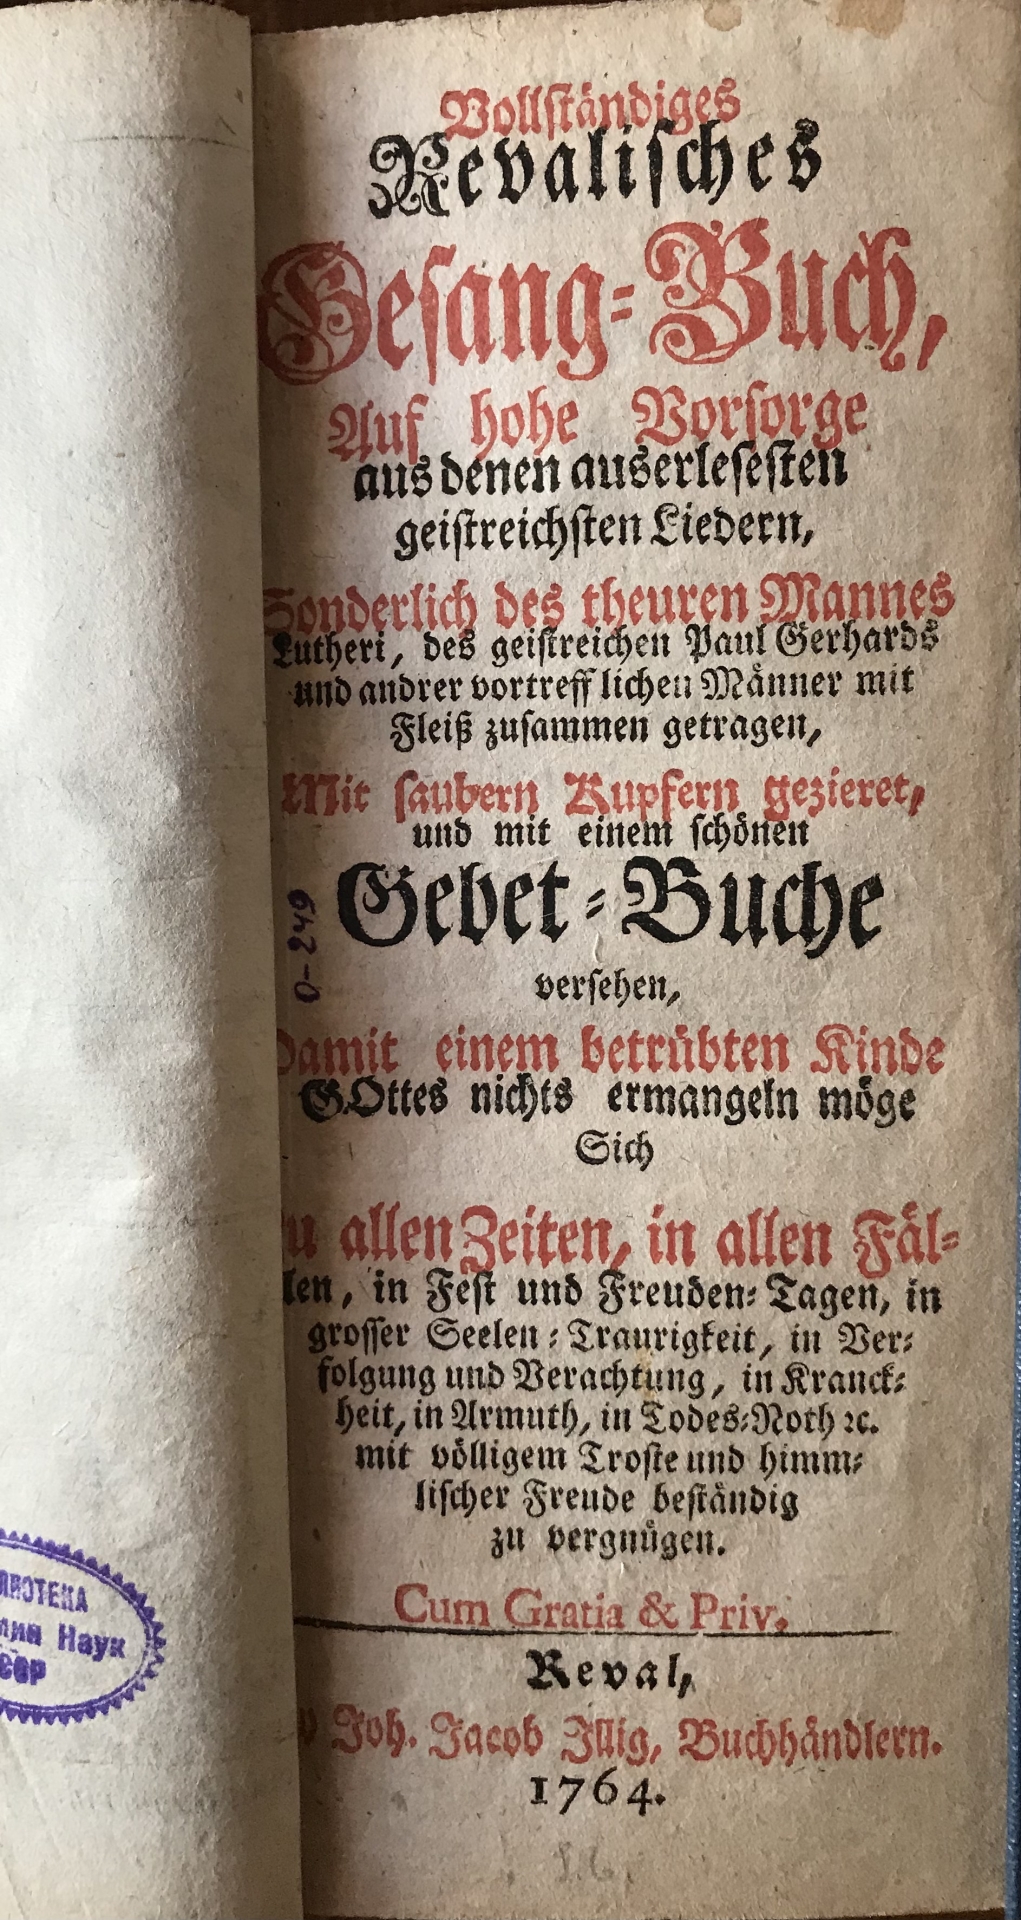 Vollständiges
Revalisches
Gesang-Buch,
Auf hohe Vorsorge
aus denen auserlesesten
geistreichsten Liedern,
Sonderlich des theuren Mannes
Lutheri, des geistreichen Paul Gerhards
und andrer vortrefflichen Männer mit
Fleiß zusammen getragen,
Mit saubern Kupfern gezieret,
und mit einem schönen
Gebet-Buche
versehen,
Damit einem betrübten Kinde
GOttes nichts ermangeln möge
Sich
u allen Zeiten, in allen Fäl-
len, in Fest und Freuden-Tagen, in
grosser Seelen-Traurigkeit, in Ver-
folgung und Verachtung, in Kranck-
heit, in Armuth, in Todes-Noth ꝛc.
mit völligem Troste und himm-
lischer Freude beständig
zu vergnügen.
Cum Gratia & Priv.
Reval,
Joh. Jacob Illig, Buchhändlern.
1764.
0-249
ЛИОТЕКА
мии Наук
ССР